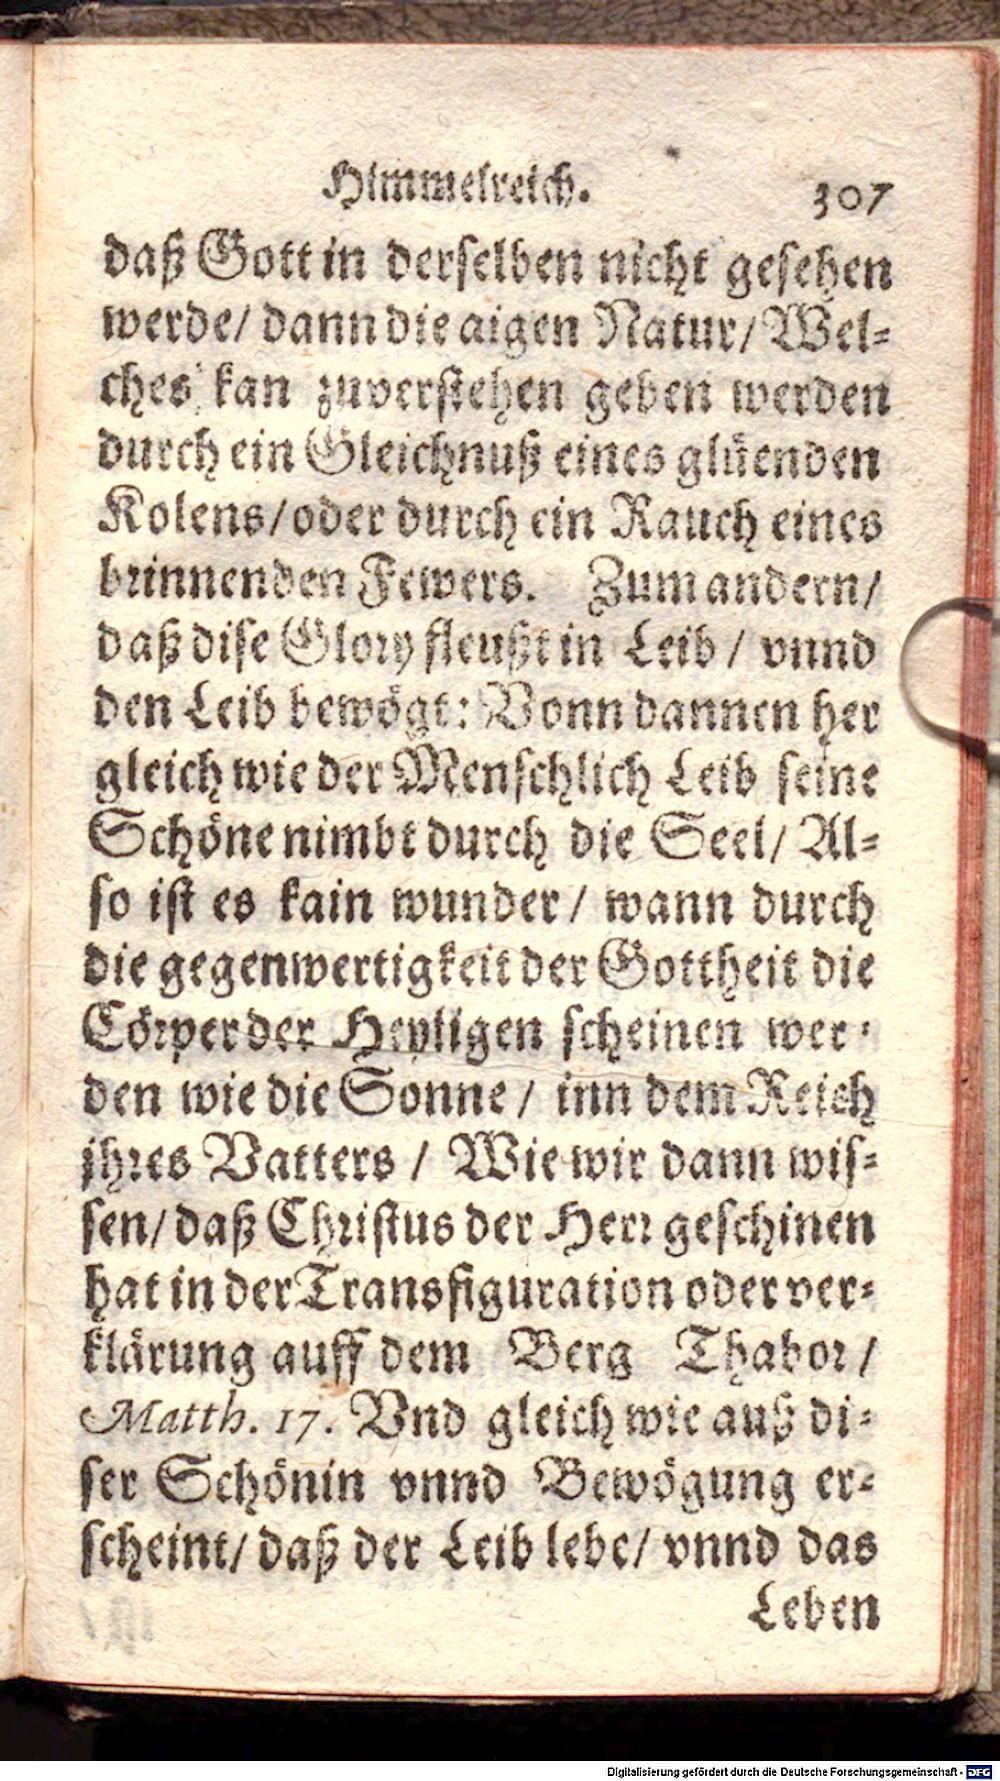 Himmelreich. 307
daß Gott in derselben nicht gesehen
werde/ dann die aigen Natur/ Wel-
ches kan zuverstehen geben werden
durch ein Gleichnuß eines glüenden
Kolens/ oder durch ein Rauch eines
brinnenden Fewers. Zum andern/
daß dise Glory fleußt in Leib / vnnd
den Leib bewögt: Vonn dannen her
gleich wie der Menschlich Leib seine
Schöne nimbt durch die Seel/ Al-
so ist es kain wunder / wann durch
die gegenwertigkeit der Gottheit die
Cörper der Heyligen scheinen wer-
den wie die Sonne / inn dem Reich
jhres Vatters / Wie wir dann wis-
sen/ daß Christus der Herr geschinen
hat in der Transfiguration oder ver-
klärung auff dem Berg Thabor /
Matth. 17. Vnd gleich wie auß di-
ser Schönin vnnd Bewögung er-
scheint/ daß der Leib lebe/ vnnd das
Leben
Digitalisierung gefördert durch die Deutsche Forschungsgemeinschaft - DFG